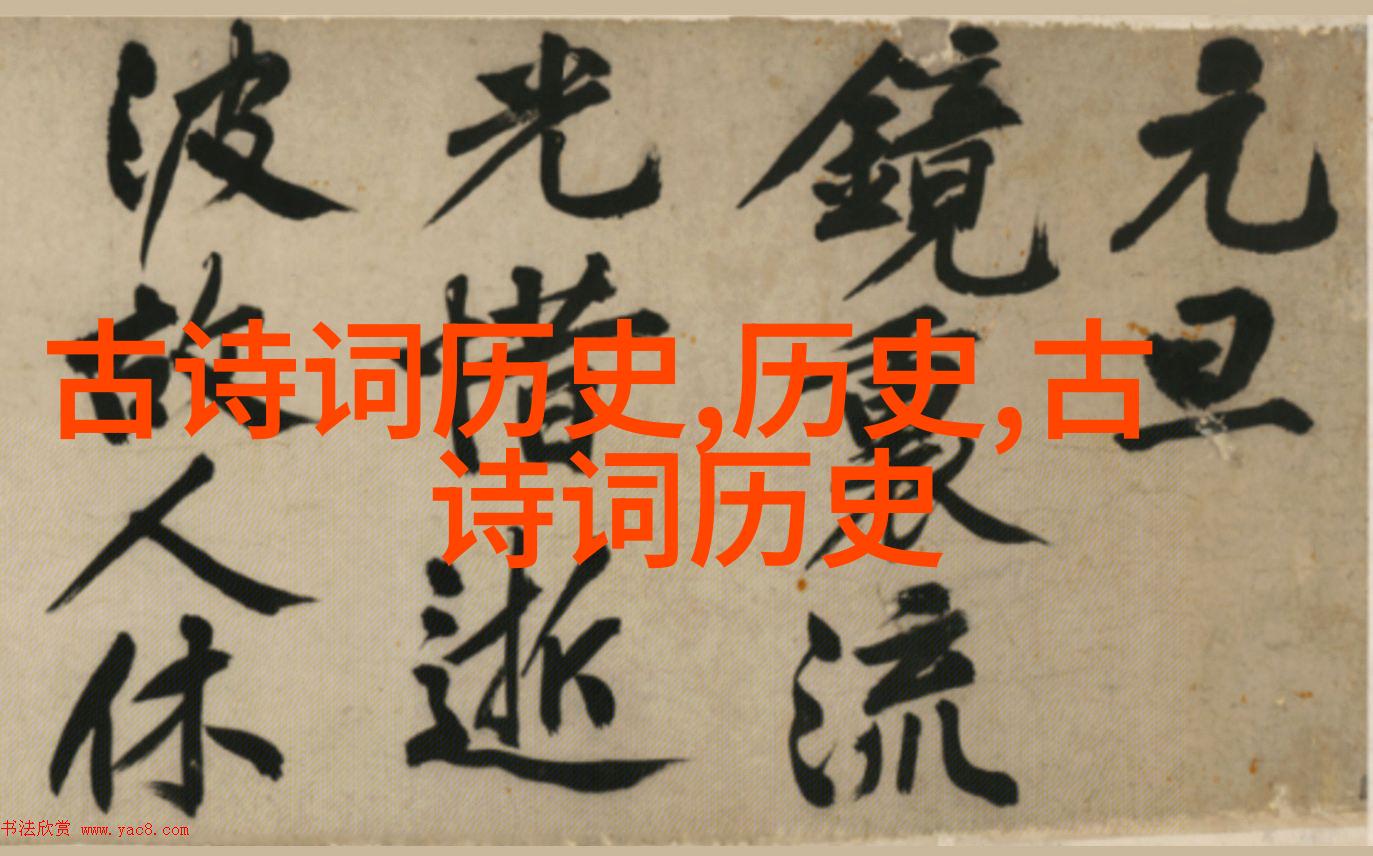 元旦
鏡裏流
光惜逝
波故人休
古诗词历史,历史,古
诗词历史
书法欣赏 www.yac8.com